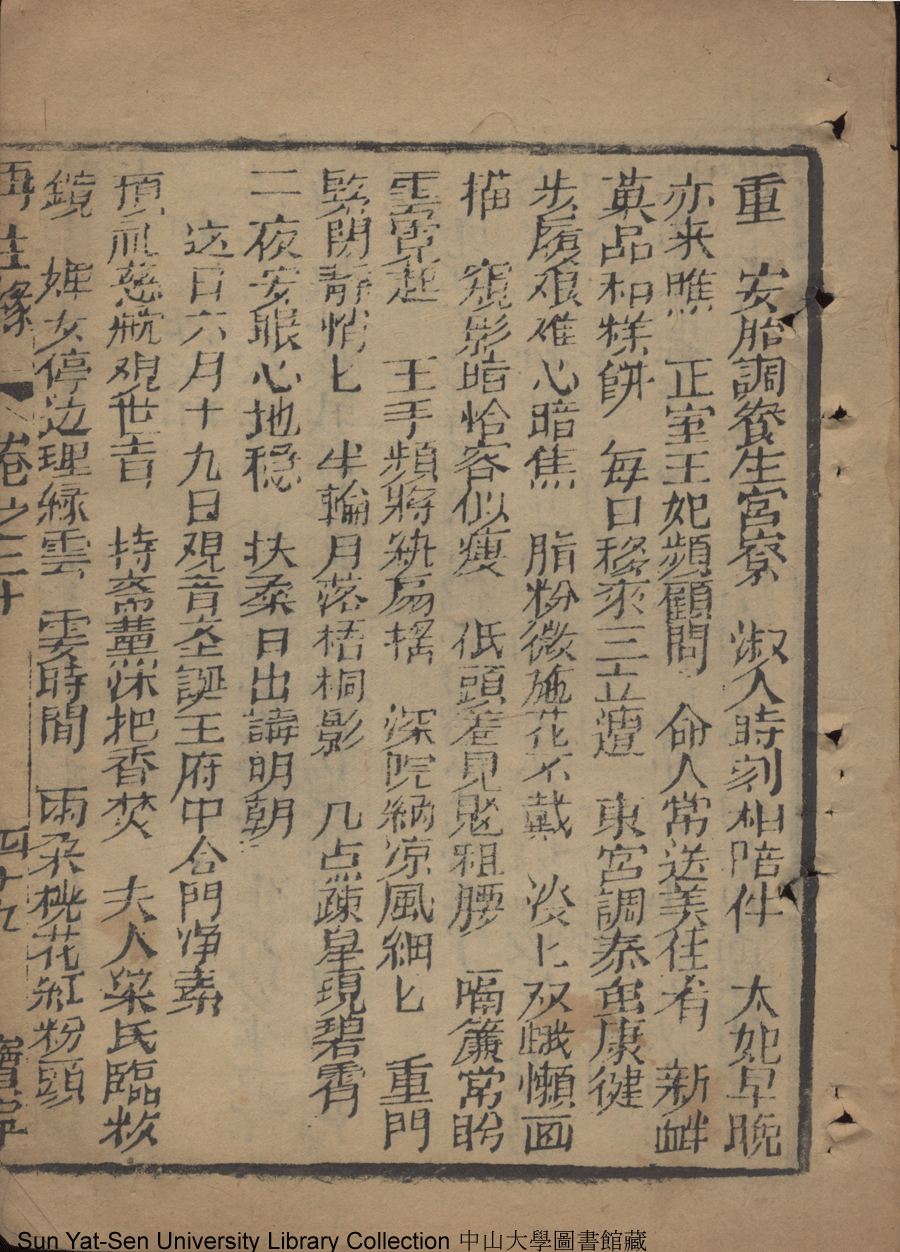 重　安胎調養生宮寮　淑人時刻相陪伴　太妃早晚
亦来瞧　正室王妃頻顧問　命人常送美佳肴　新鮮
菓品和糕餅　每日移來三五遭　東宮調泰虽康健
步履艰难心暗焦　脂粉微施花不戴　淡匕双蛾懒画
描　窺影暗恰容似瘦　低頭羞見眍粗腰　隔簾常盼
雲霄起　王手頻將紈扇搖　深院納凉風細匕　重門
緊閉靜悄匕　半輪月落梧桐影　几点疎星現碧霄
一夜安眠心地穩　扶桑日出講明朝
这日六月十九日观音圣誕王府中合門净素
頂礼慈航观世音　持斋薰沐把香焚　夫人梁氏臨妝
鏡　婢女停边理綠雲　霎時間　兩朵桃花紅粉頭
再生緣　卷之三十　四十九　寶寧
Sun Yat-Sen University Library Collection 中山大學圖書館藏